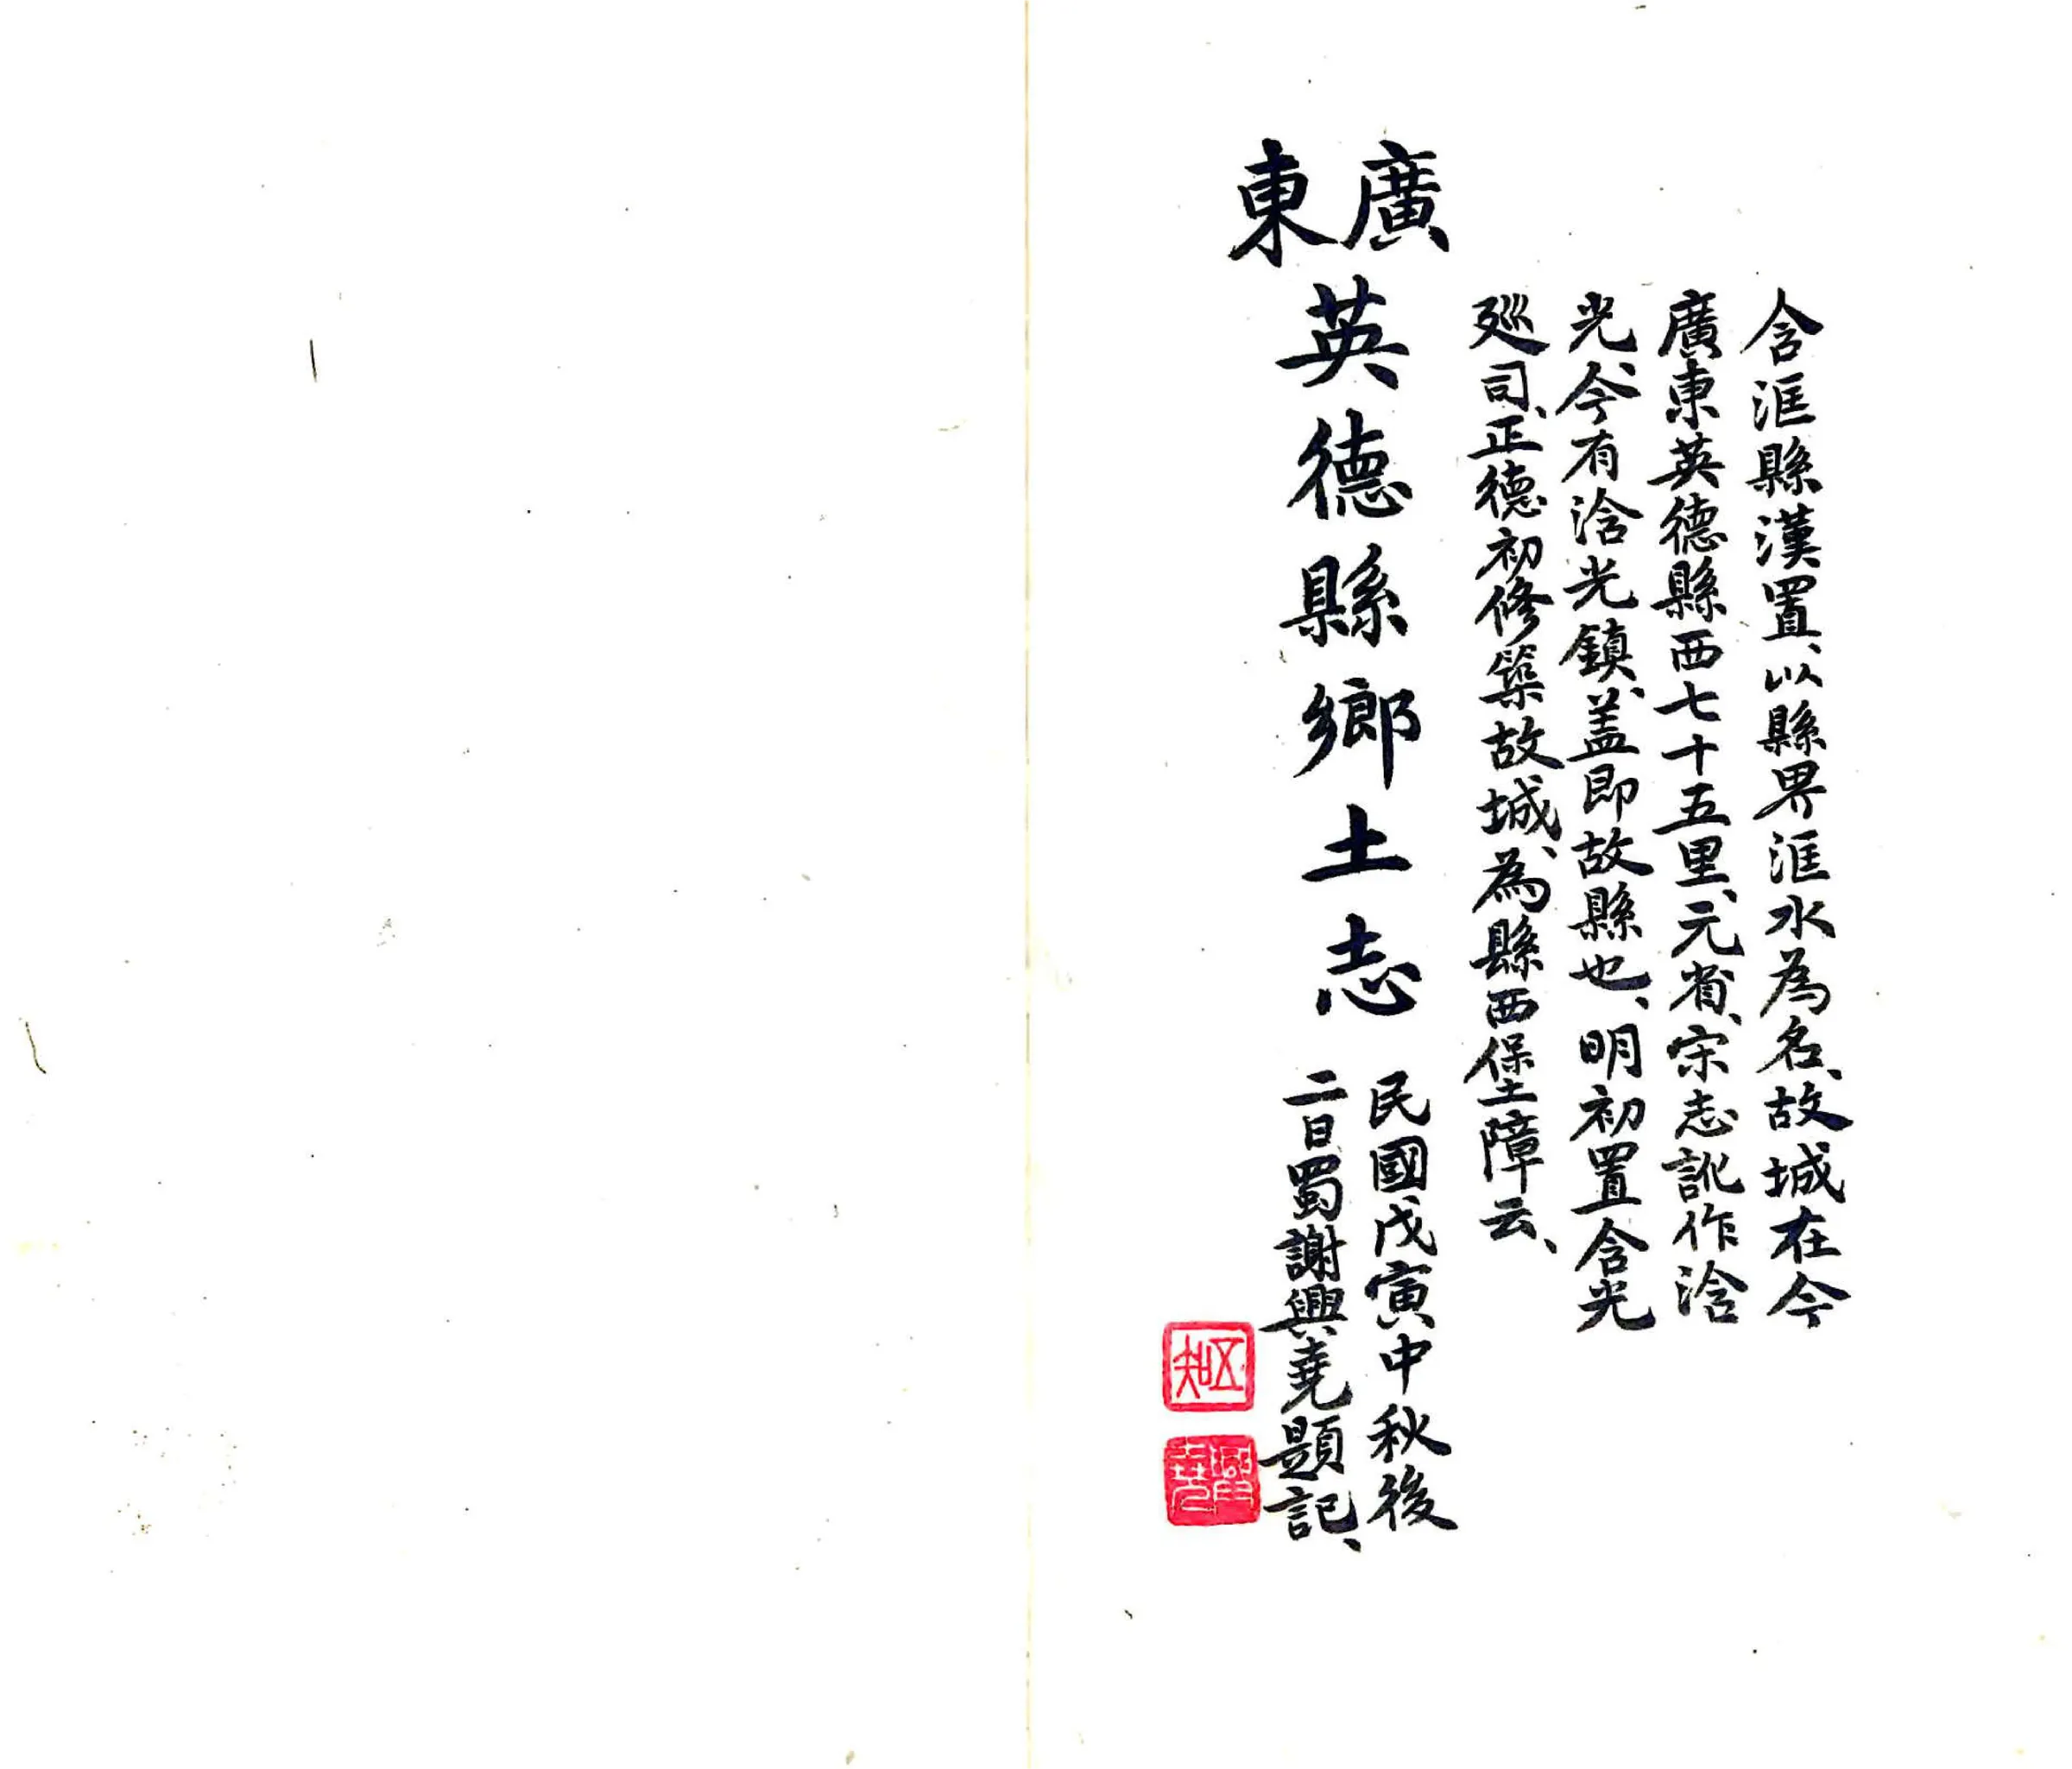 含洭縣漢置、以縣界洭水為名、故城在今
廣東英德縣西七十五里、元省、宋志訛作浛
光、今有浛光鎮、盖即故縣也、明初置含光
廵司、正德初修築故城、為縣西保堡障云、
廣東英德縣鄉土志
民國戊寅中秋後
二日蜀謝興堯題記、
五知
興堯